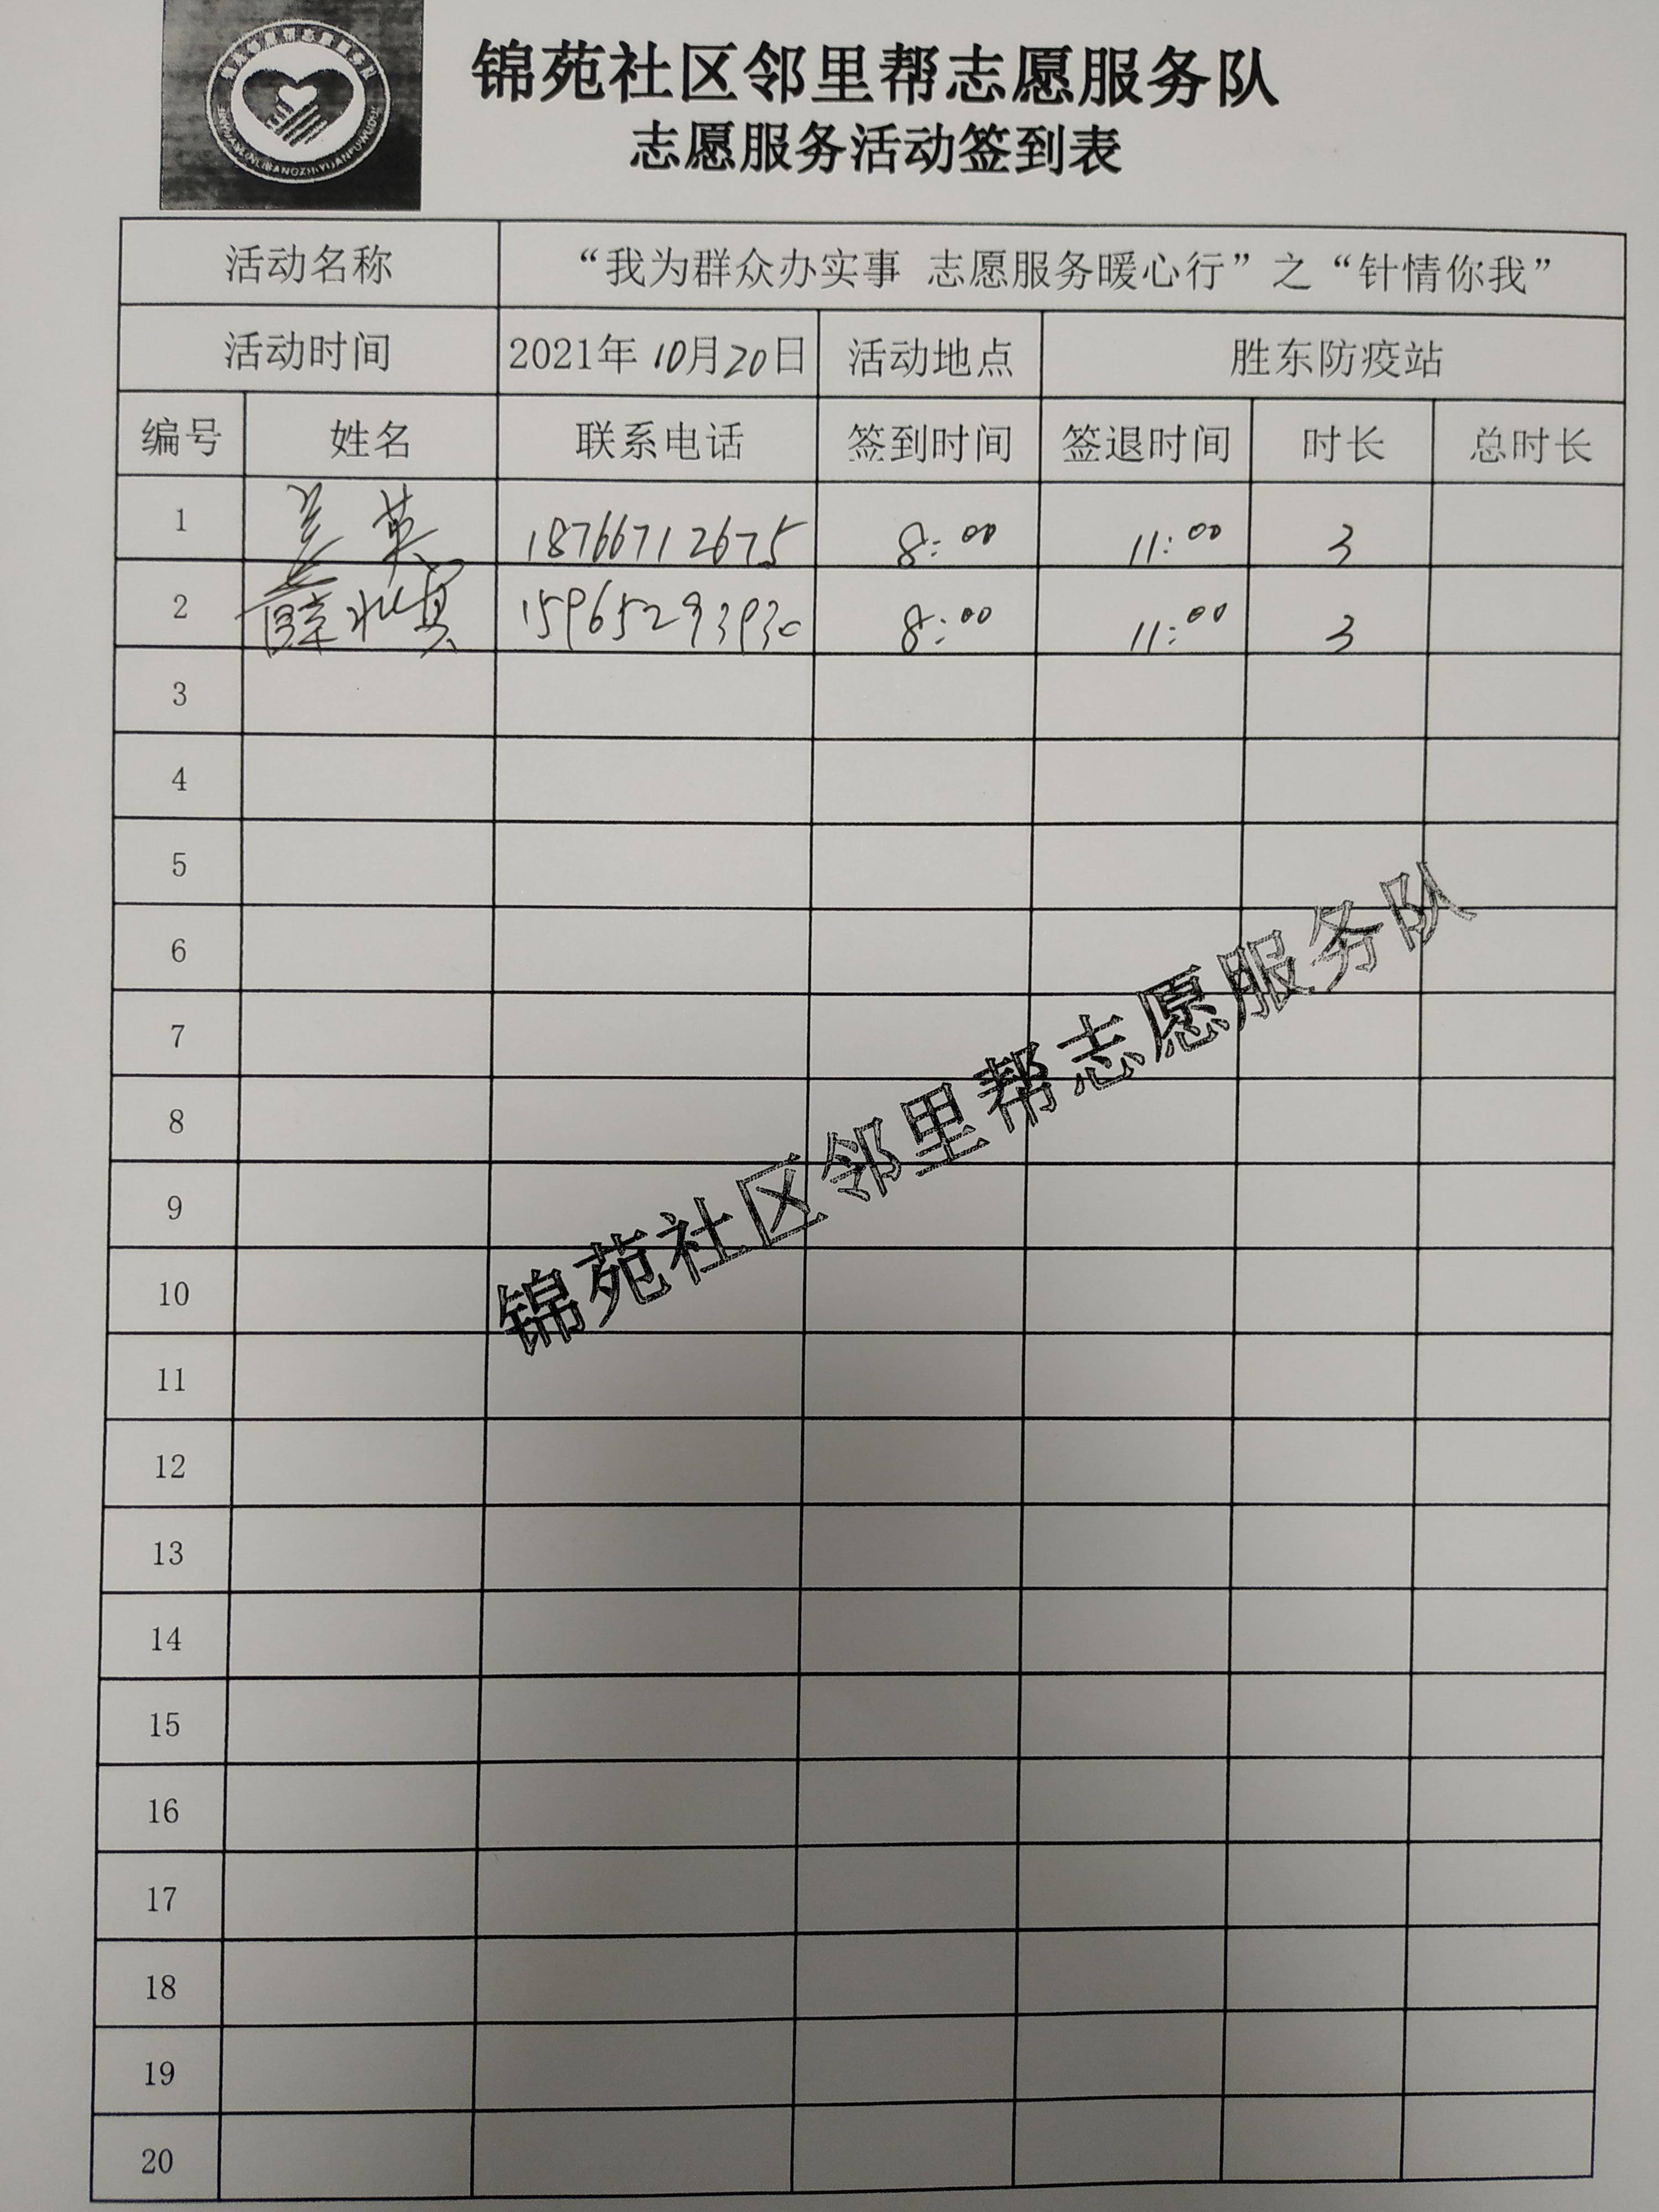 锦苑社区邻里帮志愿服务队
志愿服务活动签到表
活动名称 “我为群众办实事 志愿服务暖心行”之“针情你我”
活动时间 2021年10月20日 活动地点 胜东防疫站
编号 姓名 联系电话 签到时间 签退时间 时长 总时长
1 英 18766712675 8:00 11:00 3
2 薛 15965293930 8:00 11:00 3
3
4
5
6
7
8
9
10
11
12
13
14
15
16
17
18
19
20
锦苑社区邻里帮志愿服务队